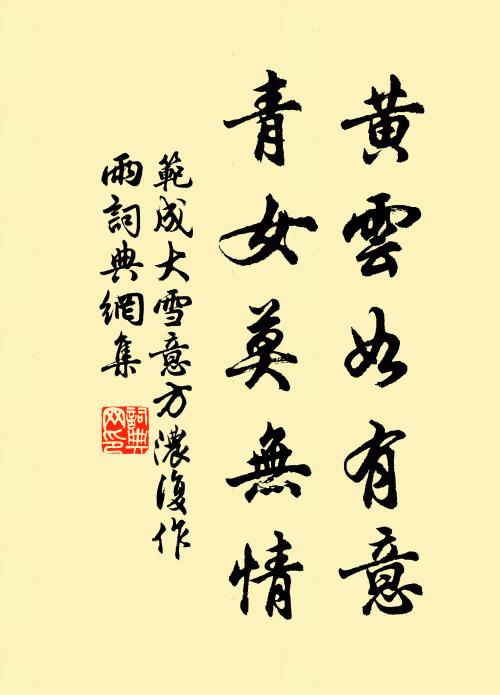 黃雲如有意
青女莫無情
範成大雪意方濃復作
雨詞典網集
詞典網印